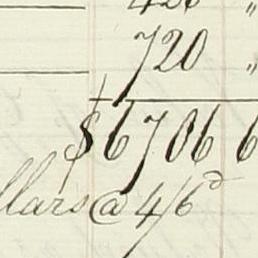 720 "
$6706 6
llars @ 4/6d